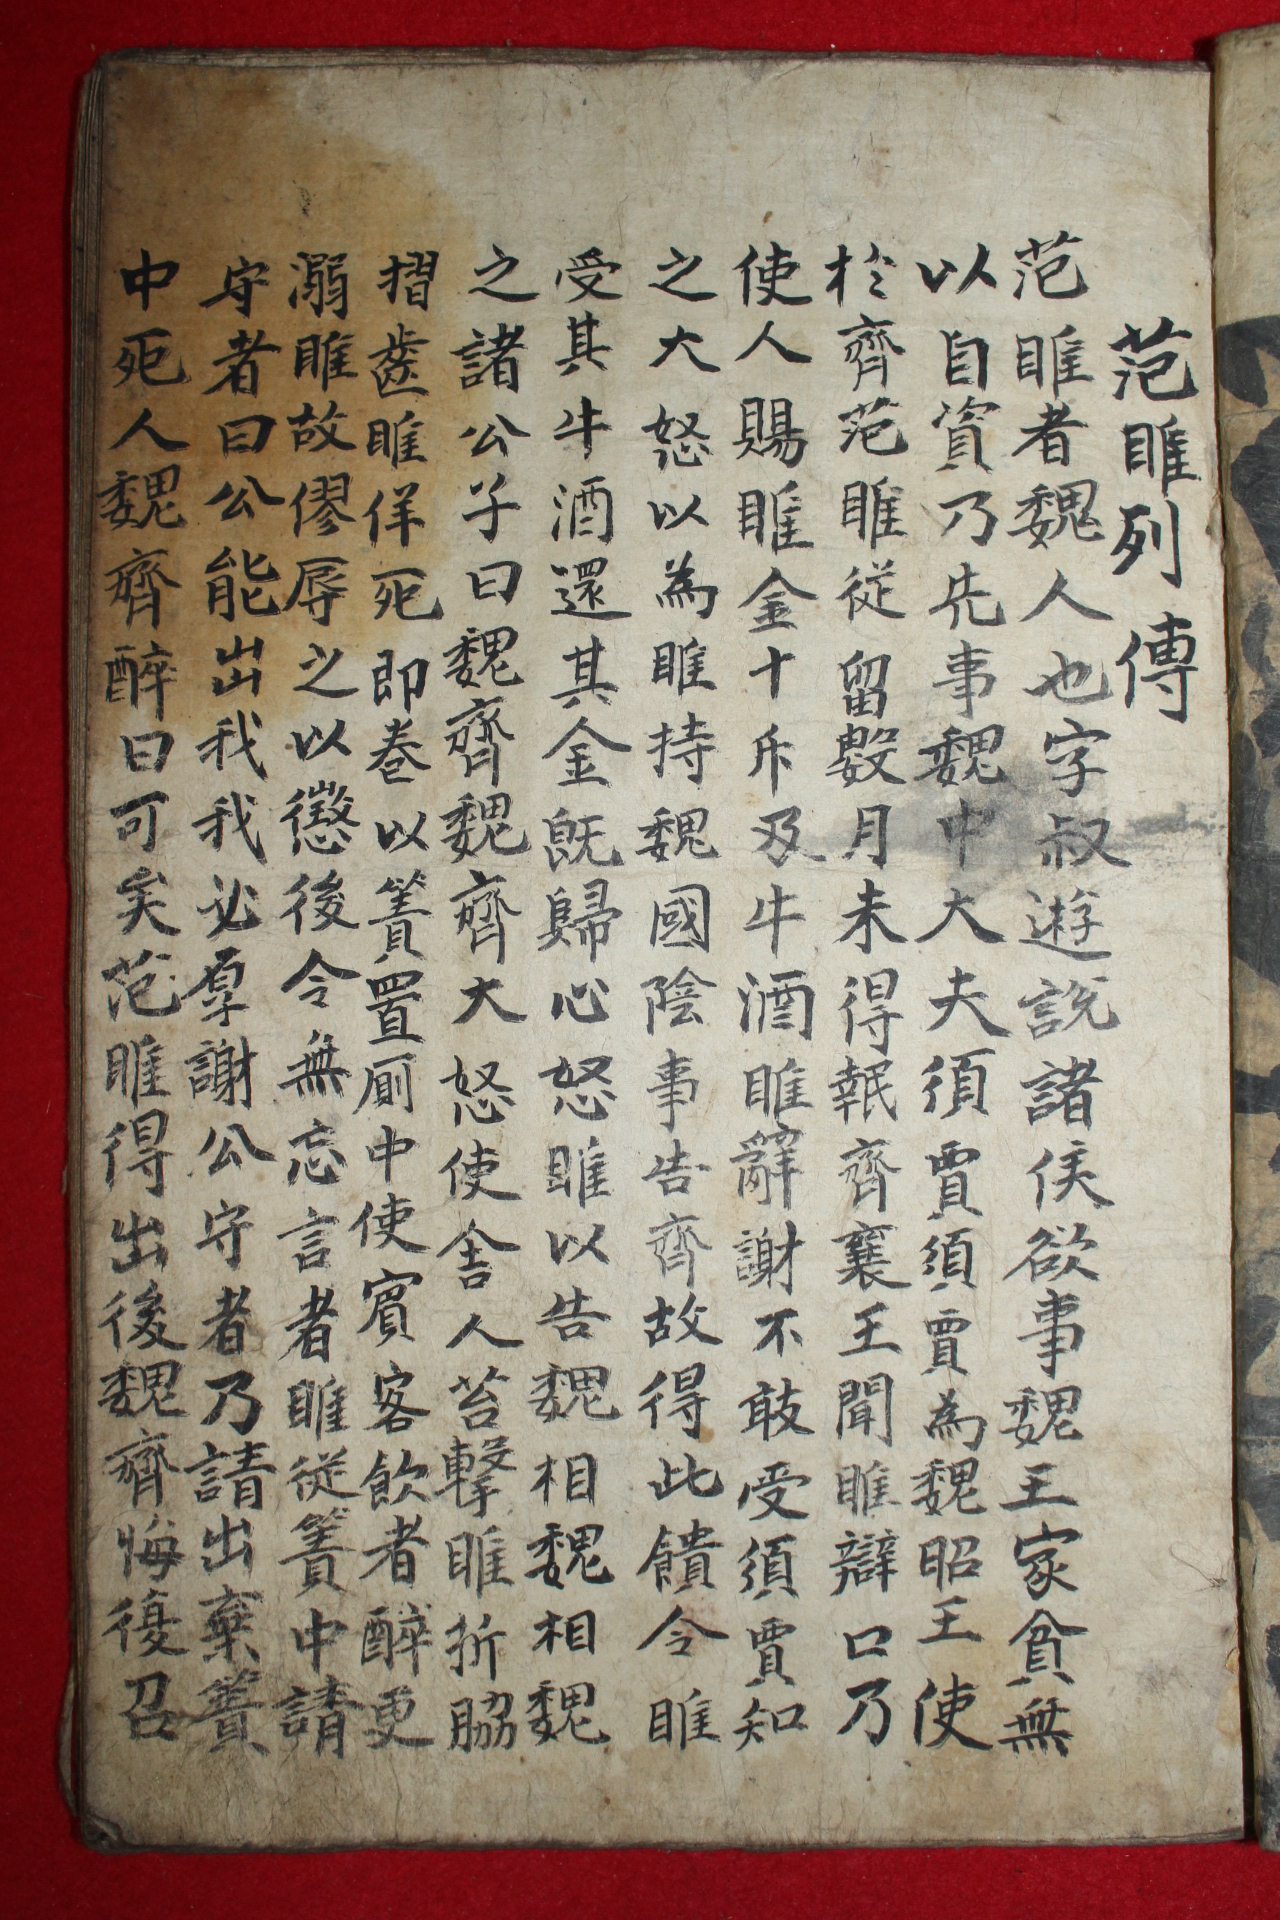 范睢列傳
范睢者魏人也字叔遊說諸侯欲事魏王家貧無
以自資乃先事魏中大夫須賈須賈為魏昭王使
於齊范睢從留數月未得報齊襄王聞睢辯口乃
使人賜睢金十斤及牛酒睢辭謝不敢受須賈知
之大怒以為睢持魏國陰事告齊故得此饋令睢
受其牛酒還其金既歸心怒睢以告魏相魏相魏
之諸公子曰魏齊魏齊大怒使舍人苔擊睢折脇
摺齒睢佯死即卷以簀置厠中使賓客飲者醉更
溺睢故僇辱之以懲後令無忘言者睢從簀中請
守者曰公能出我我必厚謝公守者乃請出棄簀
中死人魏齊醉曰可矣范睢得出後魏齊悔復召